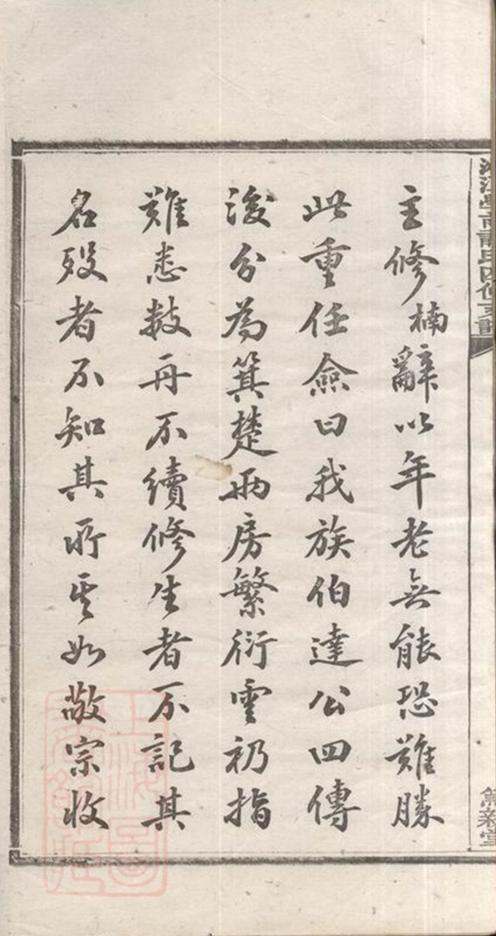 主修楠辭以年老無能恐難勝
此重任僉曰我族伯達公四傳
後分為箕楚兩房繁衍雲礽指
難悉數再不續修生者不記其
名歿者不知其所其如敬宗收
上海圖
書館藏